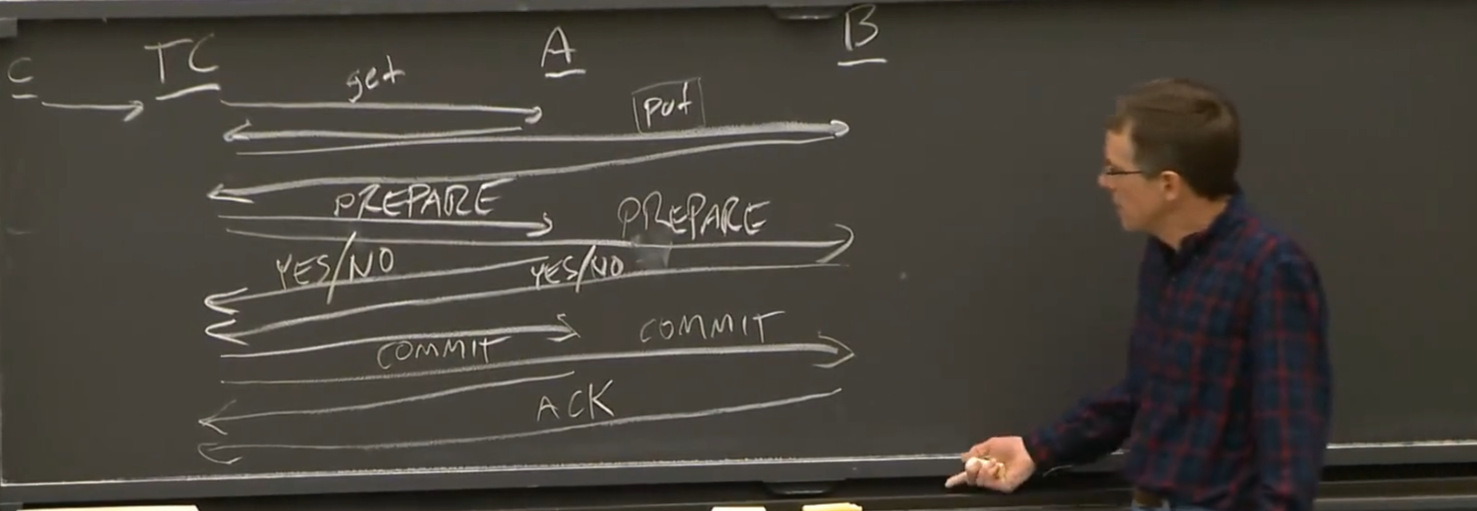 C TC A B
get
put
PREPARE
PREPARE
YES/NO YES/NO
COMMIT
COMMIT
ACK